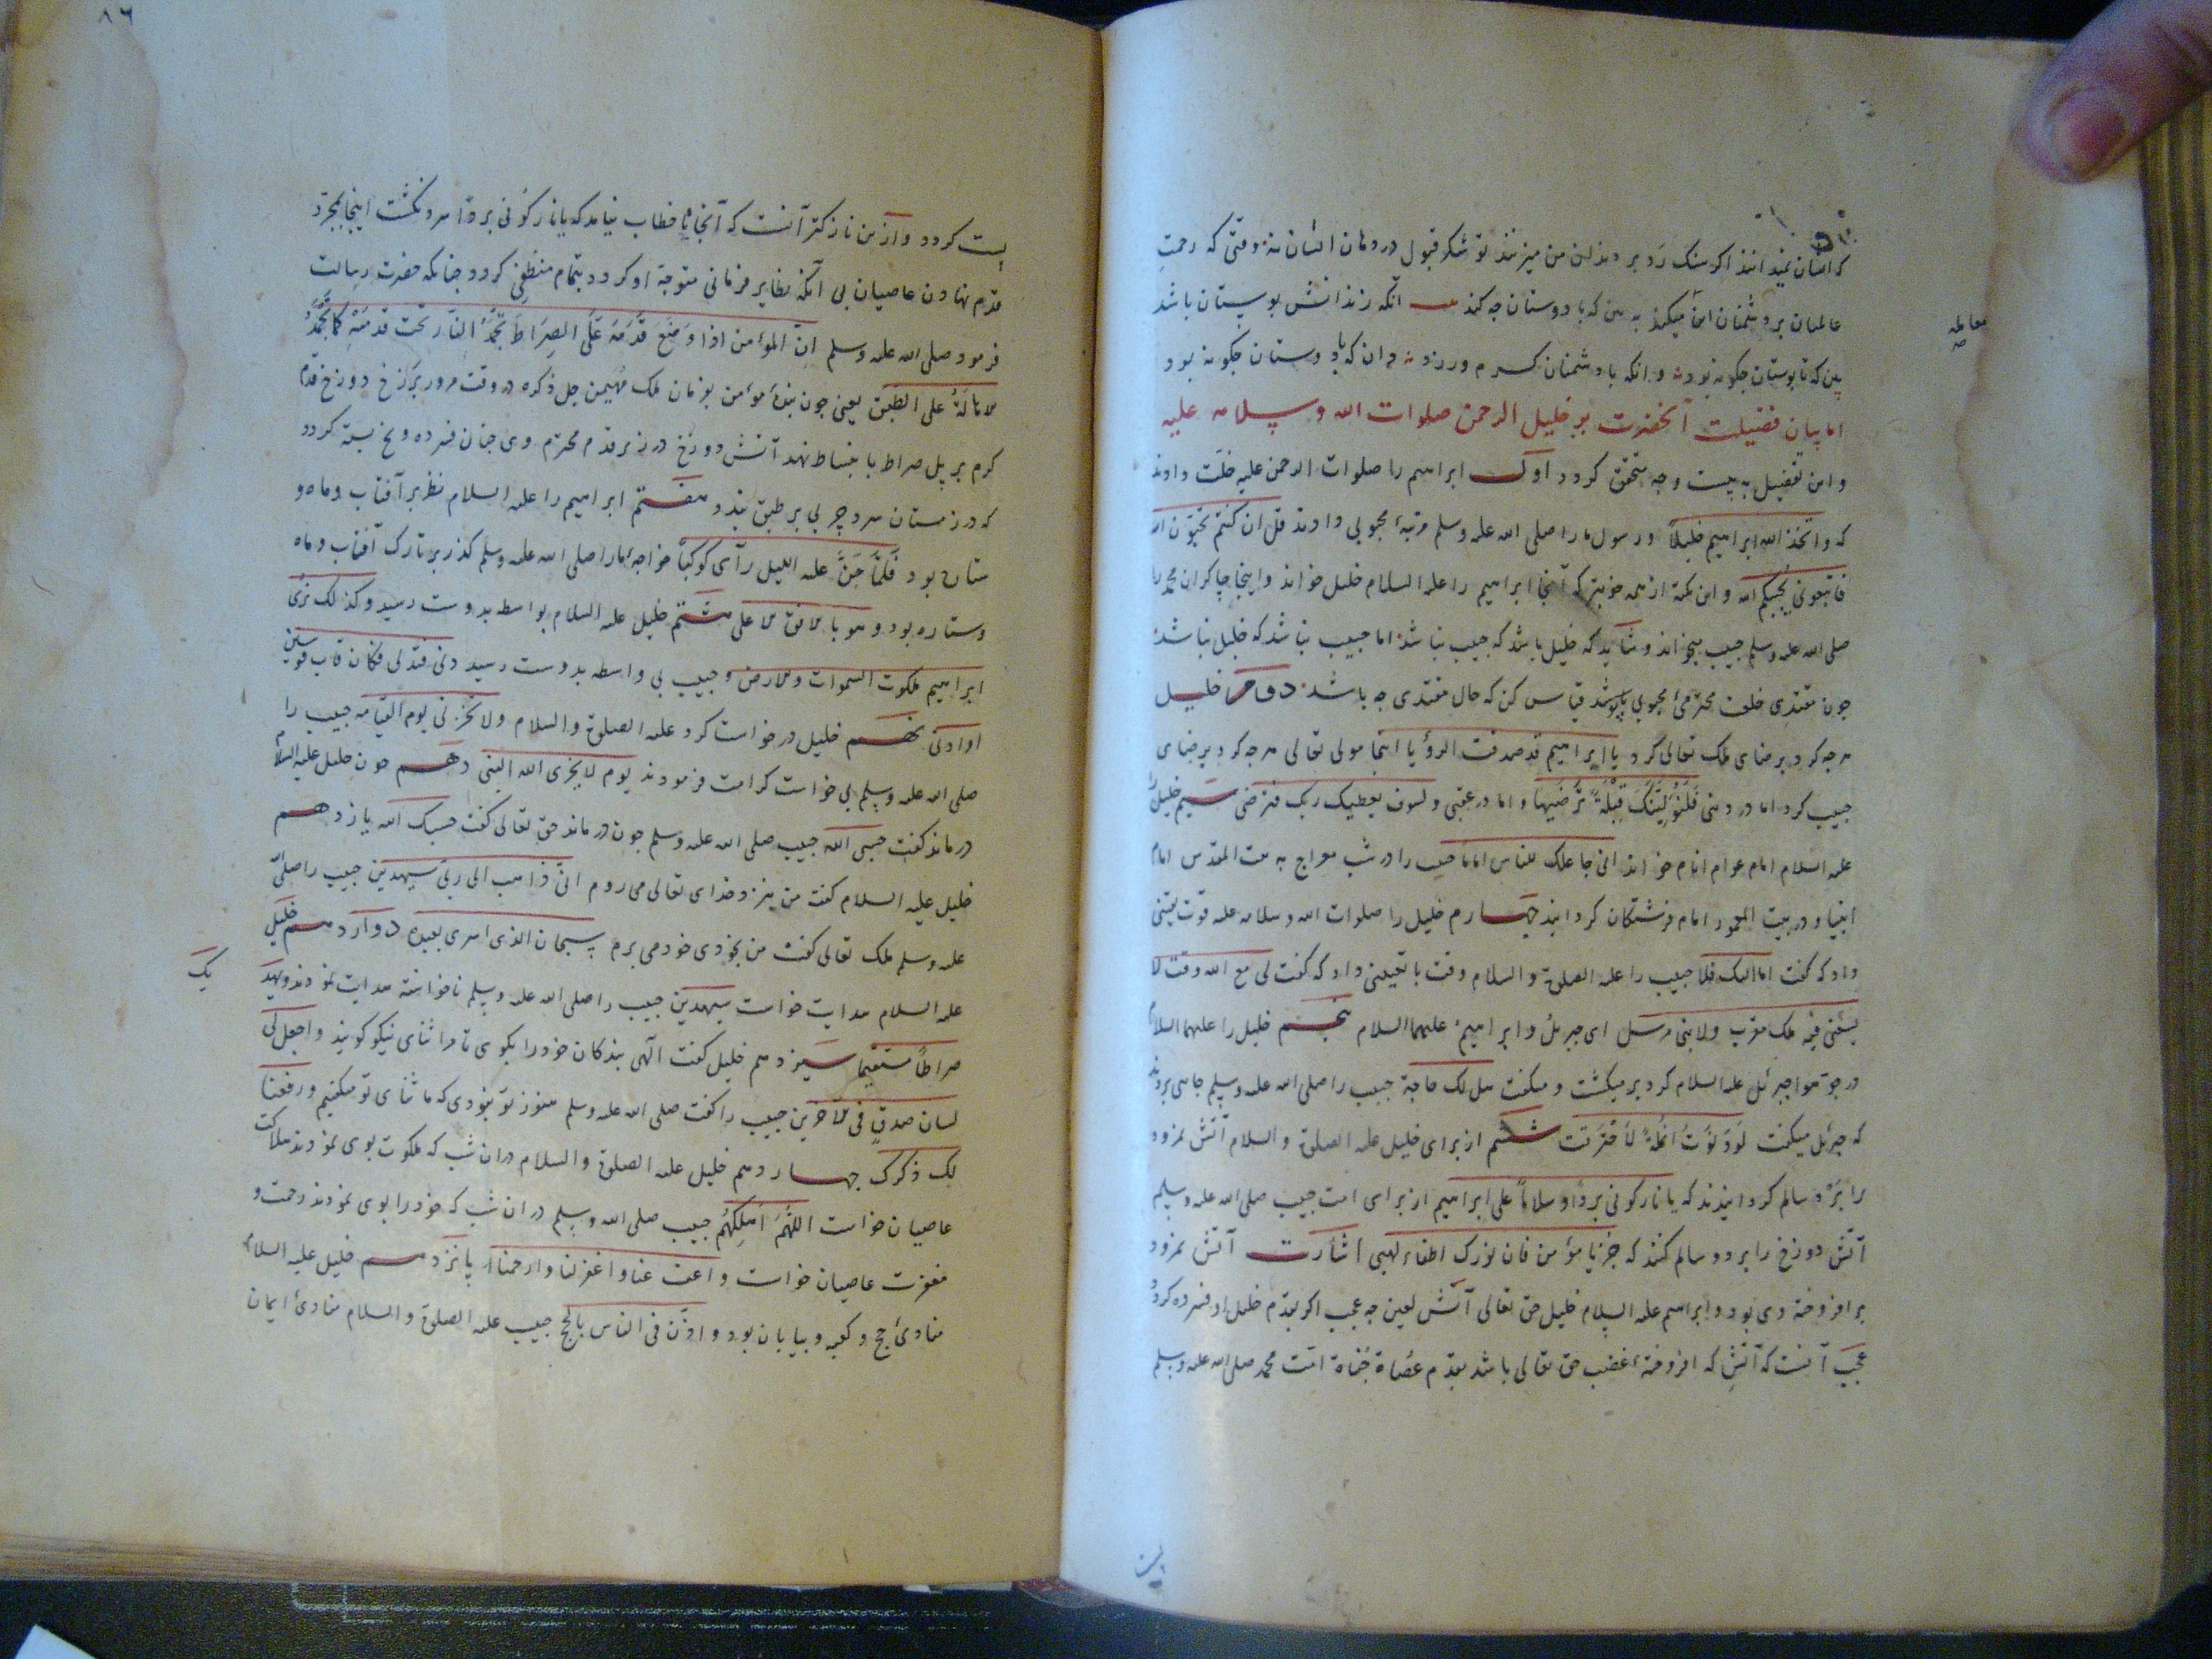 که ایشان نمیدانند اگر سنگ رد بر دندان من میزنند تو شکر قبول در دهان ایشان نه وقتی که رحمت
عالمیان بر دشمنان این میکند به بین که با دوستان چه کند آنکه زندانش بوستان باشد
بین که تا بوستان چکونه بود و انکه با دشمنان کرم ورزد دان که با دوستان چکونه بود
معامله
اما بیان فضیلت آنحضرت بر خلیل الرحمن صلوات الله و سلامه علیه
و این تفضیل به بیست وجه متحقق کردد اول ابراهیم را صلوات الرحمن علیه خلّت دادند
که واتخذ الله ابراهیم خلیلاً و رسول ما را صلی الله علیه وسلم مرتبهٔ محبوبی دادند قل ان کنتم تحبّون الله
فاتبعونی یحببکم الله و این نکته از همه خوبتر که آنجا ابراهیم را علیه السلام خلیل خواند و اینجا چاکران محمد را
صلی الله علیه وسلم حبیب میخواند و شاید که خلیل باشد که حبیب نباشد اما حبیب نباشد که خلیل نباشد
چون مقتدی خلعت محترمیٔ محبوبی پوشد قیاس کن که حال مقتدی چه باشد دوم خلیل
هرچه کرد برضای ملک تعالی کرد یا ابراهیم قد صدقت الرؤیا اینجا مولی تعالی هرچه کرد برضای
حبیب کرد اما در دنیی فَلَنُوَلِّیَنَّکَ قِبْلَةً تَرْضَیها و اما در عقبی ولسوف یعطیک ربک فترضی سیم خلیل را
علیه السلام امام عوام انام خواند انی جاعلک للناس اماما حبیب را در شب معراج به بیت المقدس امام
انبیا و در بیت المعمور امام فرشتکان کردانید چهارم خلیل را صلوات الله وسلامه علیه قوت یقینی
داد که کفت اما الیک فلا حبیب را علیه الصلوة والسلام وقت با تعیینی داد که کفت لی مع الله وقت لا
یسعنی فیه ملک مقرب ولا نبی مرسل ای جبرئل و ابراهیم علیهما السلام پنجم خلیل را علیهما السلام
در جوّ هوا جبرئل علیه السلام کرد بر میکشت و میکفت هل لک حاجة حبیب را صلی الله علیه وسلم جاهی بردند
که جبرئل میکفت لَو دَنَوتُ اَنمُلَةً لَاحْتَرَقت ششم از برای خلیل علیه الصلوة والسلام آتش نمرود
را بَرْد سالم کردانیدند که یا نار کونی برداً وسلاماً علی ابراهیم از برای امت حبیب صلی الله علیه وسلم
آتش دوزخ را برد و سالم کنند که جُزْ یا مؤمن فان نورک اطفاء لهبی اشارت آتش نمرود
بر افروخته دی بود و ابراهیم علیه السلام خلیل حق تعالی آتش لعین چه عجب اکر بقدم خلیل او فسرده کردد
عجب آنست که آتش که افروختهٔ غضب حق تعالی باشد بقدم عُصاة جُفاة امّت محمد صلی الله علیه وسلم
پست
۸۶
پست کردد و ازین نازکتر آنست که آنجا تا خطاب نیامد که یا نار کونی بردًا سرد نکشت اینجا بمجرد
قدم نهادن عاصیان بی آنکه بظاهر فرمانی متوجه او کردد بتمام منطفی کردد چنانکه حضرت رسالت
فرمود صلی الله علیه وسلم ان المؤمن اذا وَضَعَ قَدَمَهُ عَلَی الصِراطَ تَجَمَّدُ النار تحت قدمَیْهِ کما تَجَمَّدُ
الاهالَةُ علی الطبق یعنی چون بندهٔ مؤمن بفرمان ملک مُهَیمن جل ذکره در وقت مرور بَرزخ دوزخ قدم
کرم بر پل صراط با بساط نهد آتش دوزخ در زیر قدم محترم وی چنان فسرده و یخ بسته کردد
که در زمستان سرد چربی بر طبق بندد هفتم ابراهیم را علیه السلام نظر بر آفتاب و ماه و
ستاره بود فَلَمّا جَنَّ علیه اللیل رآی کوکباً خواجهٔ ما را صلی الله علیه وسلم کذر بر تارک آفتاب و ماه
و ستاره بود و هو بالافق الاعلی هشتم خلیل علیه السلام بواسطه بدوست رسید وکذلک نری
ابراهیم ملکوت السموات والارض و حبیب بی واسطه بدوست رسید دنی فتدلی فکان قاب قوسین
او ادنی نهم خلیل درخواست کرد علیه الصلوة والسلام ولا تخزنی یوم القیامه حبیب را
صلی الله علیه وسلم بی خواست کرامت فرمودند یوم لا یخزی الله النبی دهم چون خلیل علیه السلام
درماند کفت حسبی الله حبیب صلی الله علیه وسلم چون درماند حق تعالی کفت حسبک الله یازدهم
خلیل علیه السلام کفت من بنزد خدای تعالی می روم انی ذاهب الی ربی سیهدین حبیب را صلی الله
علیه وسلم ملک تعالی کفت من بخودی خود می برم سبحان الذی اسری بعبده دوازدهم خلیل
علیه السلام هدایت خواست سیهدین حبیب را صلی الله علیه وسلم ناخواسته هدایت نمودند ویهدیک
صراطاً مستقیما سیزدهم خلیل کفت الهی بندکان خود را بکوی تا مرا ثنای نیکو کویند واجعل لی
لسان صدق فی الآخرین حبیب را کفت صلی الله علیه وسلم هنوز تو نبودی که ما ثنای تو میکفتیم ورفعنا
لک ذکرک چهاردهم خلیل علیه الصلوة والسلام در آن شب که ملکوت بوی نمودند هلاکت
عاصیان خواست اللهُمَ اَهلِکهُم حبیب صلی الله علیه وسلم در ان شب که خود را بوی نمودند رحمت و
مغفرت عاصیان خواست واعف عنا واغفر لنا وارحمنا پانزدهم خلیل علیه السلام
منادیٔ حج و کعبه و بیابان بود و اذّن فی الناس بالحج حبیب علیه الصلوة والسلام منادیٔ ایمان